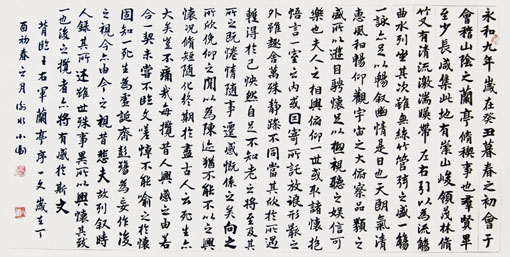 永和九年歲在癸丑暮春之初會于
會稽山陰之蘭亭脩稧事也羣賢畢
至少長咸集此地有崇山峻領茂林脩
竹又有清流激湍暎帶左右引以為流觴
曲水列坐其次雖無絲竹管弦之盛一觴
一詠亦足以暢敘幽情是日也天朗氣清
惠風和暢仰觀宇宙之大俯察品類之
盛所以遊目騁懷足以極視聽之娛信可
樂也夫人之相與俯仰一世或取諸懷抱
悟言一室之內或因寄所託放浪形骸之
外雖趣舍萬殊靜躁不同當其欣於所遇
蹔得於己怏然自足不知老之將至及其
所之既惓情隨事遷感慨係之矣向之
所欣俛仰之間以為陳迹猶不能不以之興
懷況脩短隨化終期於盡古人云死生亦
大矣豈不痛哉每攬昔人興感之由若
合一契未嘗不臨文嗟悼不能喻之於懷
固知一死生為虛誕齊彭殤為妄作後
之視今亦由今之視昔悲夫故列敘時
人錄其所述雖世殊事異所以興懷其致
一也後之攬者亦將有感於斯文
背臨王右軍蘭亭序一文歲在丁
酉初春之月